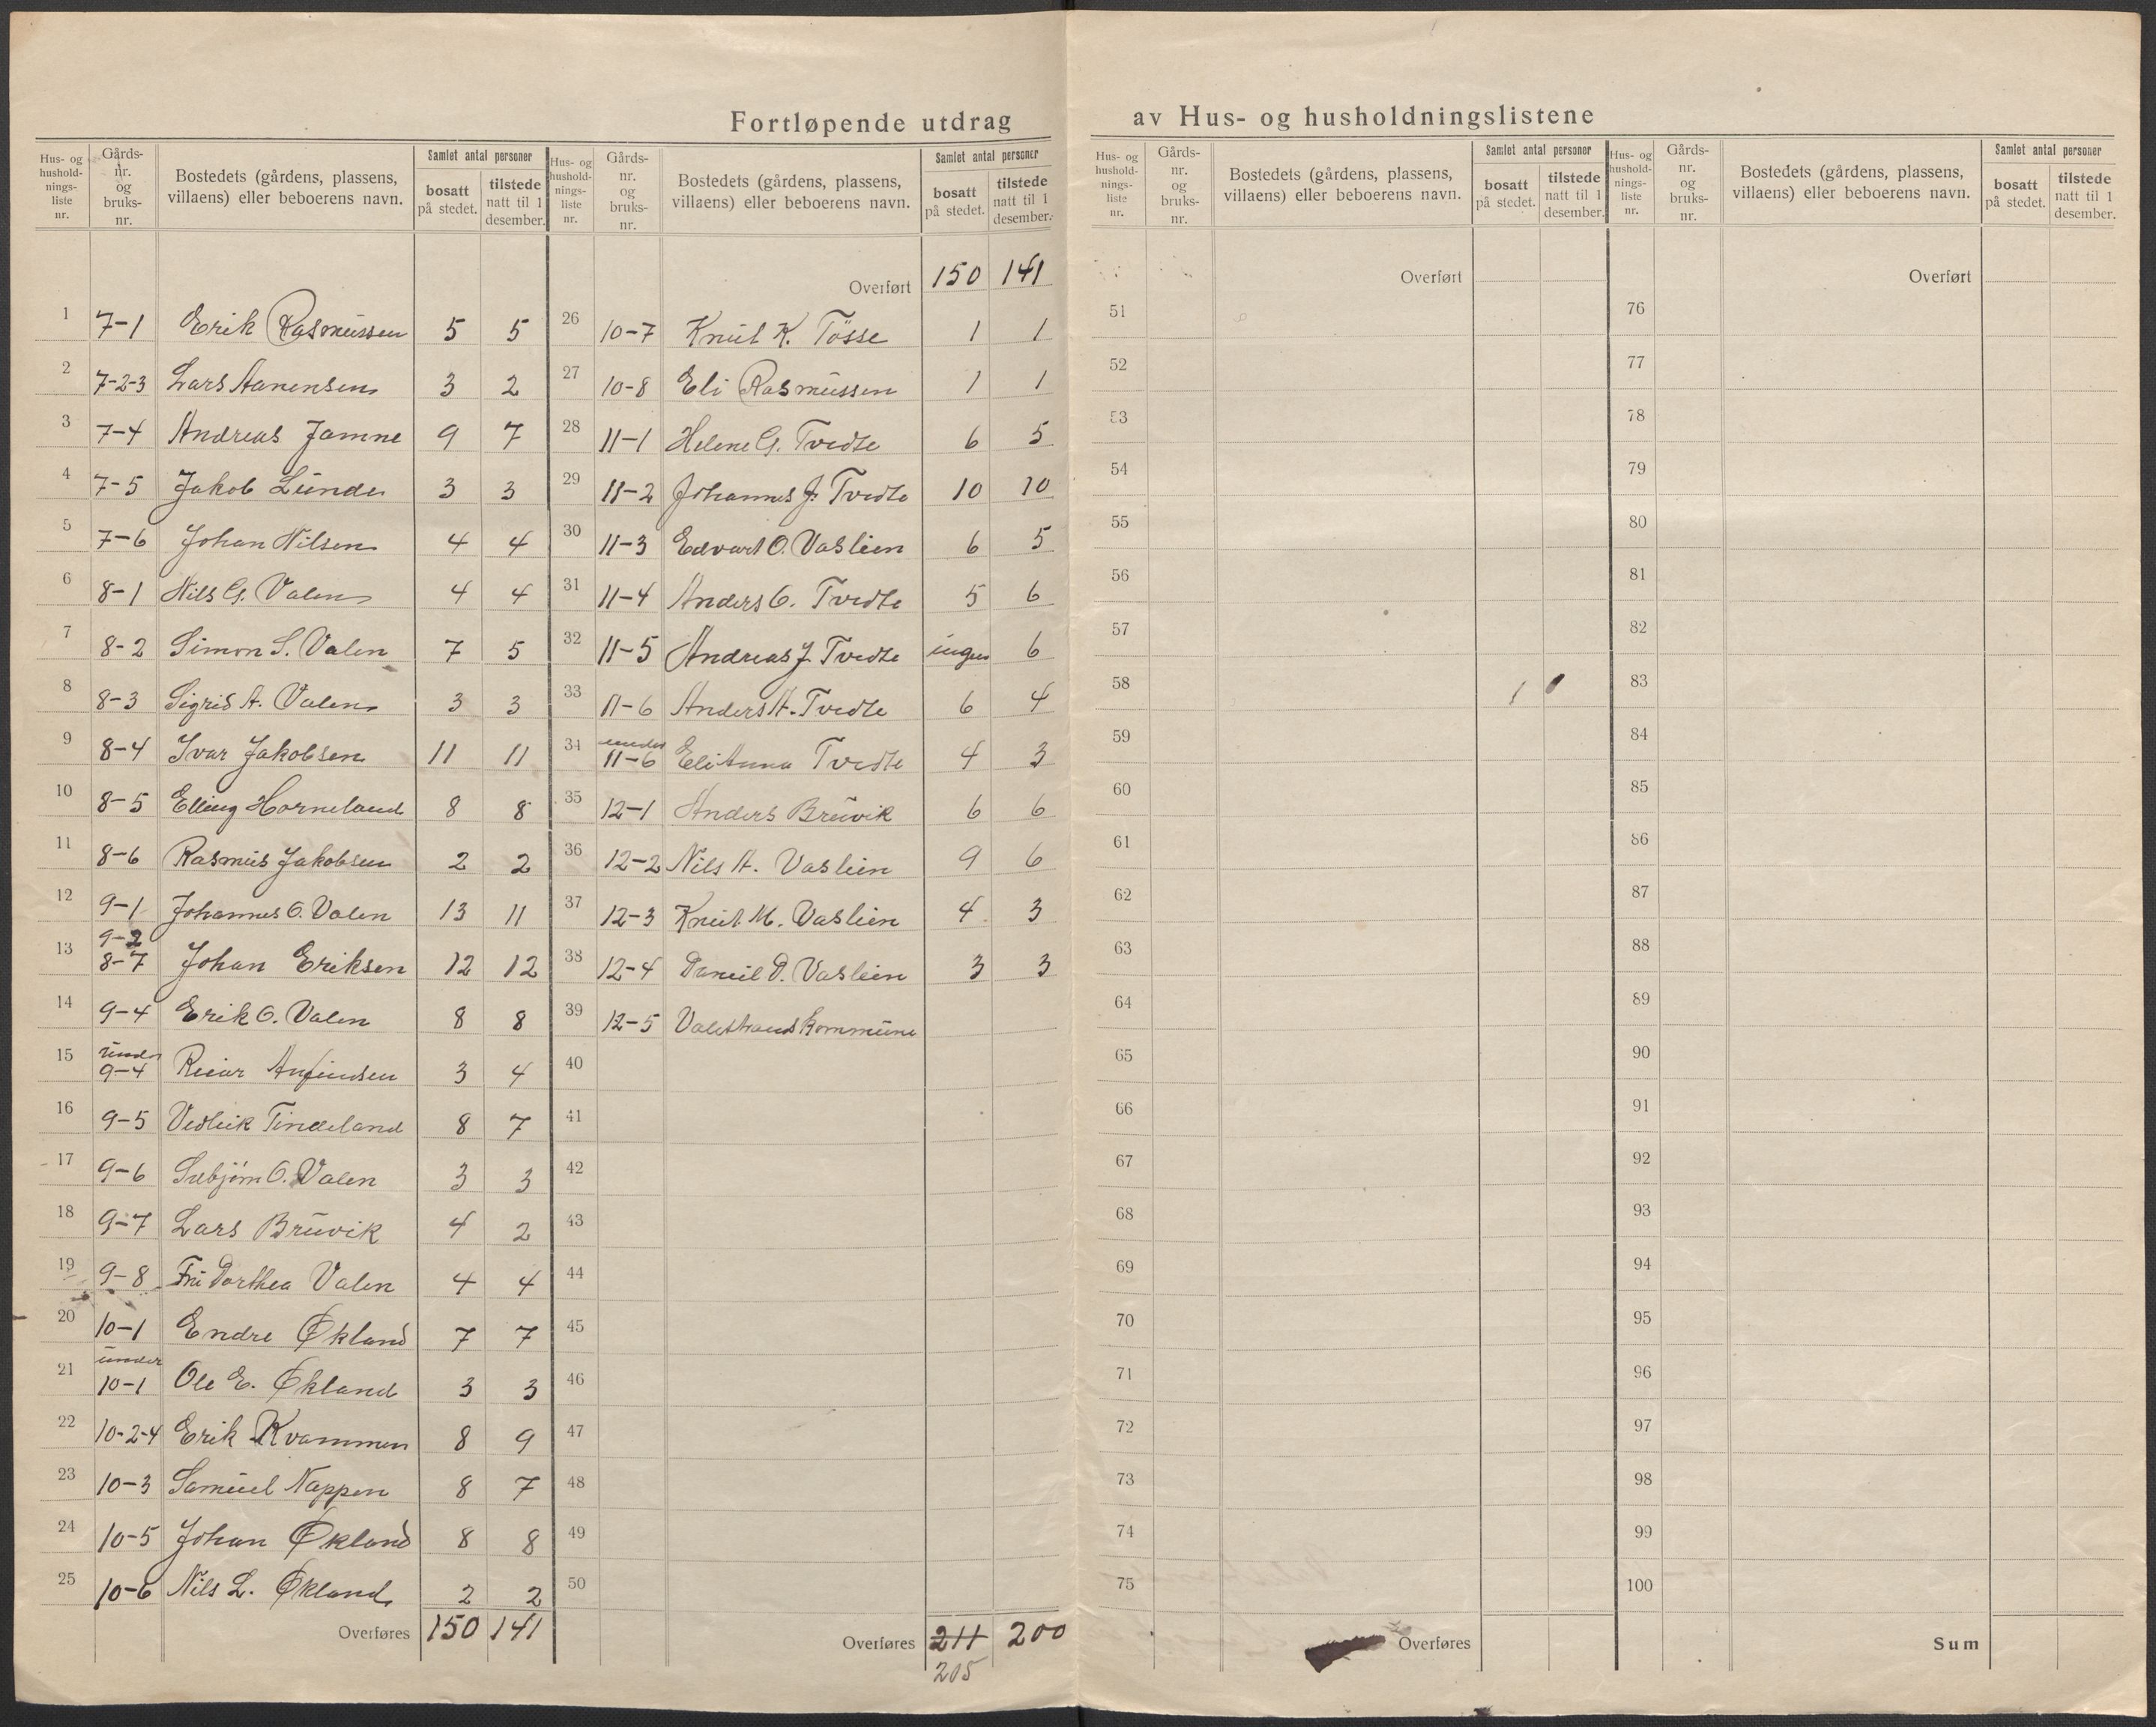 Fortløpende utdrag av Hus- og husholdningslistene
Hus- og husholdnings- liste nr. | Gårds- nr. og bruks- nr. | Bostedets (gårdens, plassens, villaens) eller beboerens navn. | Samlet antal personer | bosatt på stedet. | tilstede natt til 1 desember.
1 7-1 Erik Rasmussen 5 5
2 7-2-3 Lars Aanensen 3 2
3 7-4 Andreas Jamne 9 7
4 7-5 Jakob Lunde 3 3
5 7-6 Johan Nilsen 4 4
6 8-1 Nils G. Valen 4 4
7 8-2 Simon S. Valen 7 5
8 8-3 Sigrid A. Valen 3 3
9 8-4 Ivar Jakobsen 11 11
10 8-5 Elling Horneland 8 8
11 8-6 Rasmus Jakobsen 2 2
12 9-1 Johannes O. Valen 13 11
13 9-2 8-7 Johan Eriksen 12 12
14 9-4 Erik O. Valen 8 8
15 under 9-4 Reiar Anfindsen 3 4
16 9-5 Vedleik Tindeland 8 7
17 9-6 Sæbjørn O. Valen 3 3
18 9-7 Lars Bruvik 4 2
19 9-8 Fru Dorthea Valen 4 4
20 10-1 Endre Økland 7 7
21 under 10-1 Ole E. Økland 3 3
22 10-2-4 Erik Kvammen 8 9
23 10-3 Samuel Nappen 8 7
24 10-5 Johan Økland 8 8
25 10-6 Nils L. Økland 2 2
Overføres 150 141
Hus- og husholdnings- liste nr. | Gårds- nr. og bruks- nr. | Bostedets (gårdens, plassens, villaens) eller beboerens navn. | Samlet antal personer | bosatt på stedet. | tilstede natt til 1 desember.
Overført 150 141
26 10-7 Knut K. Tösse 1 1
27 10-8 Eli Rasmussen 1 1
28 11-1 Helene G. Tvedte 6 5
29 11-2 Johannes J. Tvedte 10 10
30 11-3 Edvart O. Vaslien 6 5
31 11-4 Anders O. Tvedte 5 6
32 11-5 Andreas J. Tvedte ingen 6
33 11-6 Anders A. Tvedte 6 4
34 under 11-6 Eli Anna Tvedte 4 3
35 12-1 Anders Bruvik 6 6
36 12-2 Nils A. Vaslien 9 6
37 12-3 Knut M. Vaslien 4 3
38 12-4 Daniel D. Vaslien 3 3
39 12-5 Valestrand kommune
40
41
42
43
44
45
46
47
48
49
50
Overføres 211 200
205
Hus- og husholdnings- liste nr. | Gårds- nr. og bruks- nr. | Bostedets (gårdens, plassens, villaens) eller beboerens navn. | Samlet antal personer | bosatt på stedet. | tilstede natt til 1 desember.
Overført
51
52
53
54
55
56
57
58
59
60
61
62
63
64
65
66
67
68
69
70
71
72
73
74
75
Overføres
Hus- og husholdnings- liste nr. | Gårds- nr. og bruks- nr. | Bostedets (gårdens, plassens, villaens) eller beboerens navn. | Samlet antal personer | bosatt på stedet. | tilstede natt til 1 desember.
Overført
76
77
78
79
80
81
82
83
84
85
86
87
88
89
90
91
92
93
94
95
96
97
98
99
100
Sum